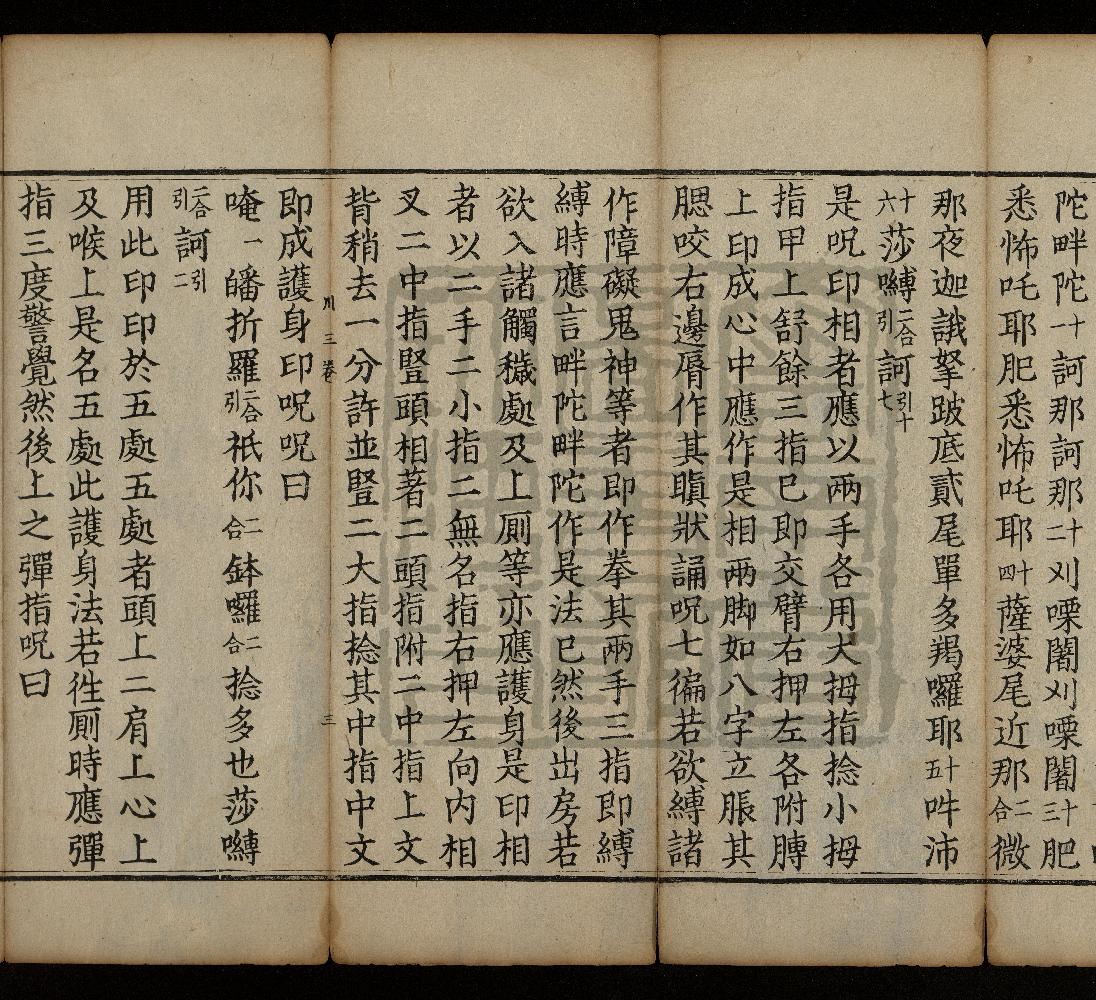 陀畔陀十一訶那訶那十二刈㗚闍刈㗚闍十三肥
悉怖吒耶肥悉怖吒耶十四薩婆尾近那二合微
那夜迦誐拏跛底貳尾單多羯囉耶十五吽沛
十六莎嚩二合引訶引十七
是呪印相者應以兩手各用大拇指捻小拇
指甲上舒餘三指已即交臂右押左各附膊
上印成心中應作是相兩脚如八字立脹其
腮咬右邊脣作其瞋狀誦呪七徧若欲縛諸
作障礙鬼神等者即作拳其兩手三指即縛
縛時應言畔陀畔陀作是法已然後出房若
欲入諸觸穢處及上厠等亦應護身是印相
者以二手二小指二無名指右押左向內相
叉二中指豎頭相著二頭指附二中指上文
背稍去一分許並豎二大指捻其中指中文
川 三卷 三
即成護身印呪呪曰
唵一皤折羅二合引祇你二合鉢囉二合捻多也莎嚩
二合引訶引二
用此印印於五處五處者頭上二肩上心上
及喉上是名五處此護身法若徃厠時應彈
指三度警覺然後上之彈指呪曰